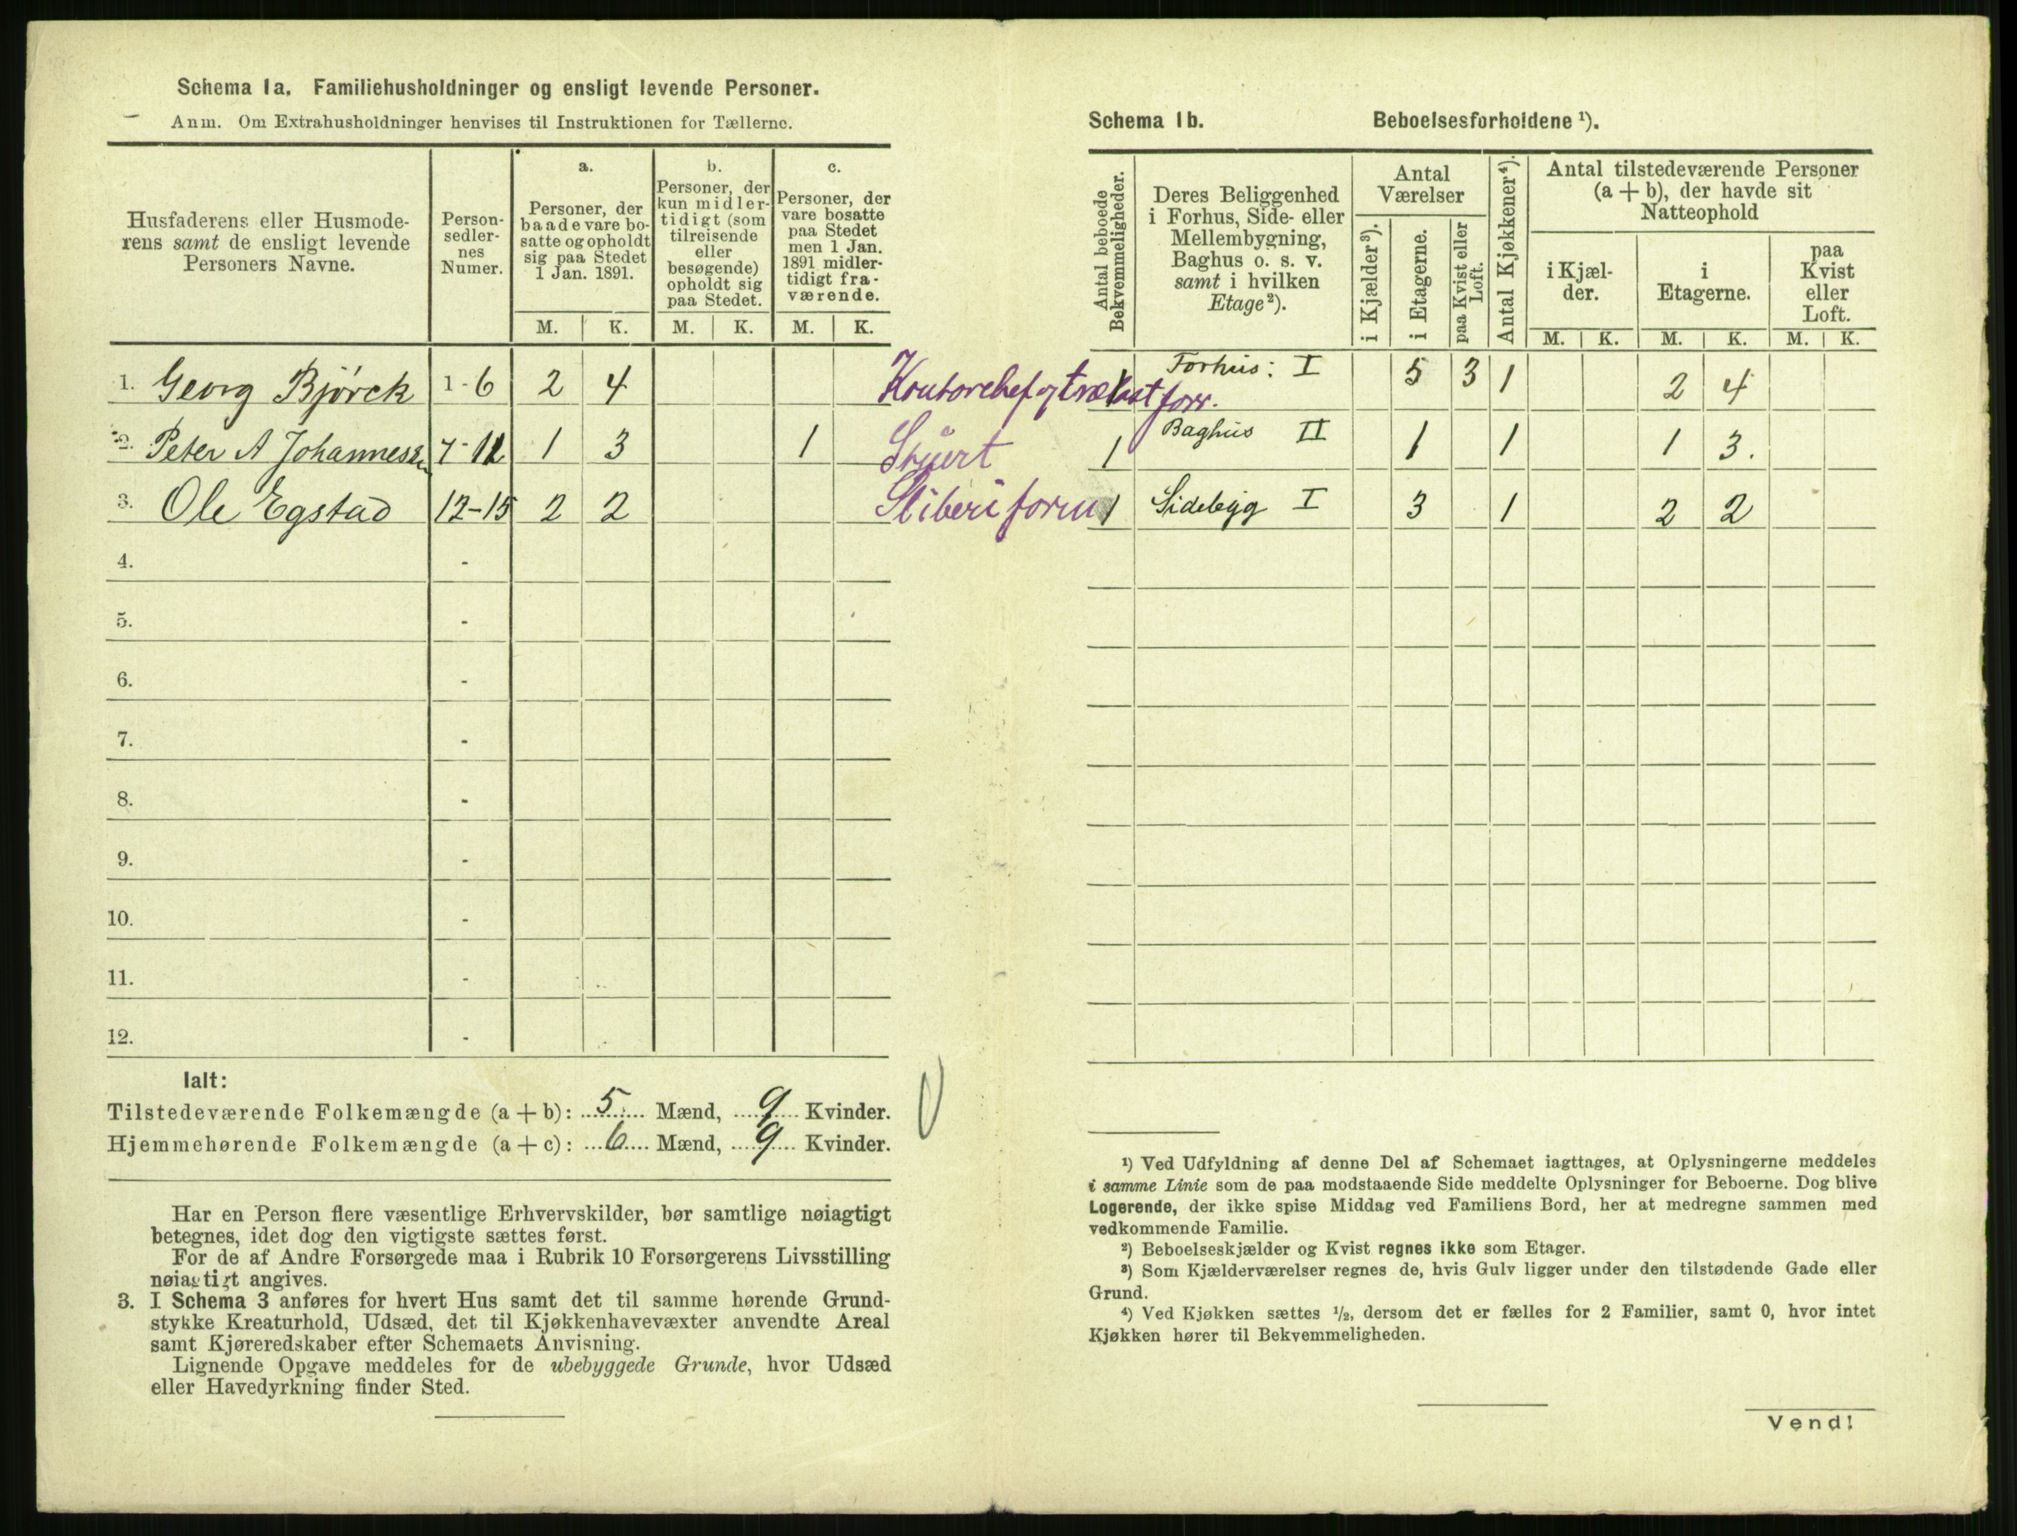 Schema 1a. Familiehusholdninger og ensligt levende Personer.
Anm. Om Extrahusholdninger henvises til Instruktionen for Tællerne.
Husfaderens eller Husmode-
rens samt de ensligt levende
Personers Navne.
Person-
sedler-
nes
Numer.
a.
Personer, der
baade vare bo-
satte og opholdt
sig paa Stedet
1 Jan. 1891.
b.
Personer, der
kun midler-
tidigt (som
tilreisende
eller
besøgende)
opholdt sig
paa Stedet.
c.
Personer, der
vare bosatte
paa Stedet
men 1 Jan.
1891 midler-
tidigt fra-
værende.
M. K. M. K. M. K.
1. Georg Bjørck 1-6 2 4 Kontorchef og trælastforr.
2. Peter A Johannessen 7-11 1 3 1
3. Ole Egstad 12-15 2 2
4. -
5. -
6. -
7. -
8. -
9. -
10. -
11. -
12. -
Ialt:
Tilstedeværende Folkemængde (a + b): 5 Mænd, 9 Kvinder.
Hjemmehørende Folkemængde (a + c): 6 Mænd, 9 Kvinder.
Har en Person flere væsentlige Erhvervskilder, bør samtlige nøiagtigt
betegnes, idet dog den vigtigste sættes først.
For de af Andre Forsørgede maa i Rubrik 10 Forsørgerens Livsstilling
nøiagtigt angives.
3. I Schema 3 anføres for hvert Hus samt det til samme hørende Grund-
stykke Kreaturhold, Udsæd, det til Kjøkkenhavevæxter anvendte Areal
samt Kjøreredskaber efter Schemaets Anvisning.
Lignende Opgave meddeles for de ubebyggede Grunde, hvor Udsæd
eller Havedyrkning finder Sted.
Schema 1b. Beboelsesforholdene ¹).
Antal beboede
Bekvemmeligheder.
Deres Beliggenhed
i Forhus, Side- eller
Mellembygning,
Baghus o. s. v.
samt i hvilken
Etage ²).
Antal
Værelser
i Kjælder ³).
i Etagerne.
paa Kvist eller
Loft.
Antal Kjøkkener ⁴).
Antal tilstedeværende Personer
(a + b), der havde sit
Natteophold
i Kjæl-
der.
i
Etagerne.
paa
Kvist
eller
Loft.
M. K. M. K. M. K.
1 Forhus: I 5 3 1 2 4
1 Baghus II 1 1 1 3.
1 Sidebyg I 3 1 2 2
¹) Ved Udfyldning af denne Del af Schemaet iagttages, at Oplysningerne meddeles
i samme Linie som de paa modstaaende Side meddelte Oplysninger for Beboerne. Dog blive
Logerende, der ikke spise Middag ved Familiens Bord, her at medregne sammen med
vedkommende Familie.
²) Beboelseskjælder og Kvist regnes ikke som Etager.
³) Som Kjælderværelser regnes de, hvis Gulv ligger under den tilstødende Gade eller
Grund.
⁴) Ved Kjøkken sættes ½, dersom det er fælles for 2 Familier, samt 0, hvor intet
Kjøkken hører til Bekvemmeligheden.
Vend!